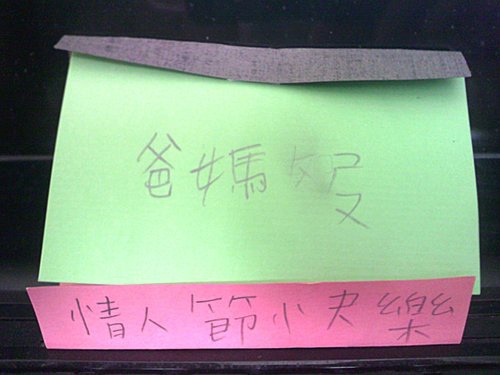 爸媽
情人節快樂